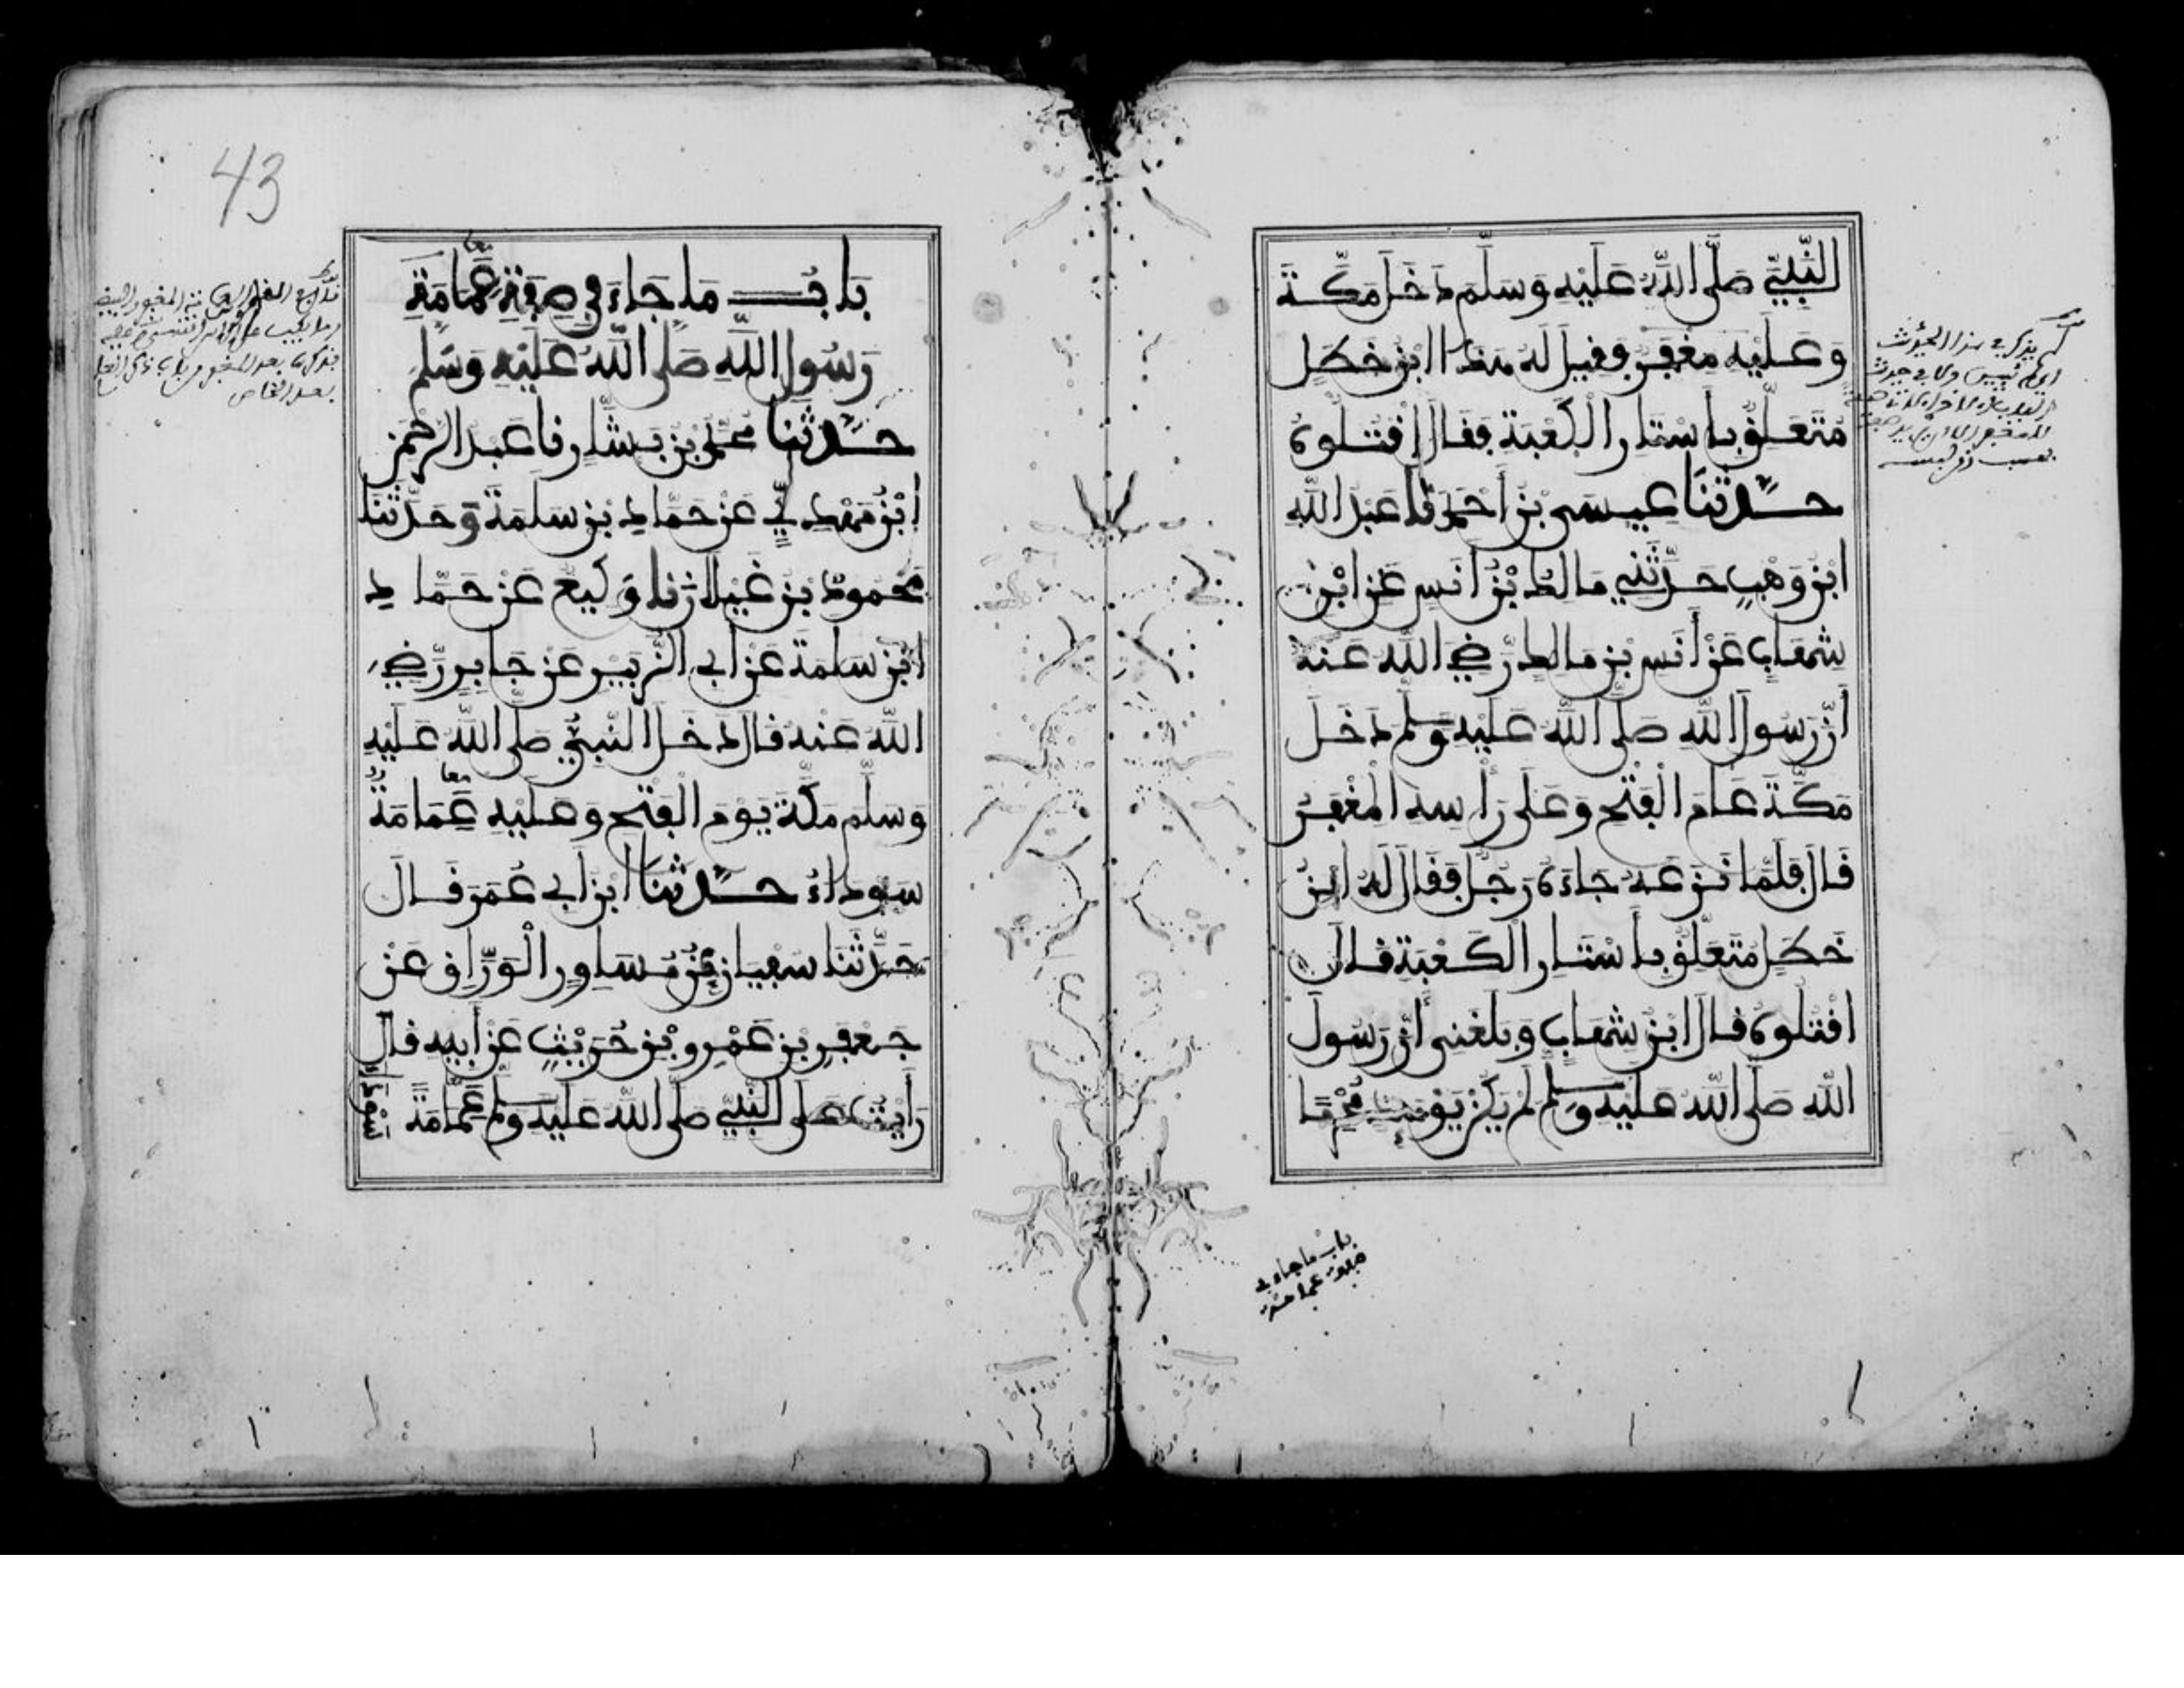 النَّبِيِّ صَلَّى اللَّهُ عَلَيْهِ وَسَلَّمَ دَخَلَ مَكَّةَ
وَعَلَيْهِ مِغْفَرٌ فَقِيلَ لَهُ هَذَا ابْنُ خَطَلٍ
مُتَعَلِّقٌ بِأَسْتَارِ الْكَعْبَةِ فَقَالَ اقْتُلُوهُ
حَدَّثَنَا عِيسَى بْنُ أَحْمَدَ نَا عَبْدُ اللَّهِ
ابْنُ وَهْبٍ حَدَّثَنِي مَالِكُ بْنُ أَنَسٍ عَنِ ابْنِ
شِهَابٍ عَنْ أَنَسِ بْنِ مَالِكٍ رَضِيَ اللَّهُ عَنْهُ
أَنَّ رَسُولَ اللَّهِ صَلَّى اللَّهُ عَلَيْهِ وَسَلَّمَ دَخَلَ
مَكَّةَ عَامَ الْفَتْحِ وَعَلَى رَأْسِهِ الْمِغْفَرُ
قَالَ فَلَمَّا نَزَعَهُ جَاءَهُ رَجُلٌ فَقَالَ لَهُ ابْنُ
خَطَلٍ مُتَعَلِّقٌ بِأَسْتَارِ الْكَعْبَةِ قَالَ
اقْتُلُوهُ قَالَ ابْنُ شِهَابٍ وَبَلَغَنِي أَنَّ رَسُولَ
اللَّهِ صَلَّى اللَّهُ عَلَيْهِ وَسَلَّمَ لَمْ يَكُنْ يَوْمَئِذٍ مُحْرِمًا
باب ما جاء في
صفة عمامة
43
بَابُ مَا جَاءَ فِي صِفَةِ عِمَامَةِ
رَسُولِ اللَّهِ صَلَّى اللَّهُ عَلَيْهِ وَسَلَّمَ
حَدَّثَنَا مُحَمَّدُ بْنُ بَشَّارٍ نَا عَبْدُ الرَّحْمَنِ
ابْنُ مَهْدِيٍّ عَنْ حَمَّادِ بْنِ سَلَمَةَ وَحَدَّثَنَا
مَحْمُودُ بْنُ غَيْلَانَ نَا وَكِيعٌ عَنْ حَمَّادِ
ابْنِ سَلَمَةَ عَنْ أَبِي الزُّبَيْرِ عَنْ جَابِرٍ رَضِيَ
اللَّهُ عَنْهُ قَالَ دَخَلَ النَّبِيُّ صَلَّى اللَّهُ عَلَيْهِ
وَسَلَّمَ مَكَّةَ يَوْمَ الْفَتْحِ وَعَلَيْهِ عِمَامَةٌ
سَوْدَاءُ حَدَّثَنَا ابْنُ أَبِي عُمَرَ قَالَ
حَدَّثَنَا سُفْيَانُ عَنْ مُسَاوِرٍ الْوَرَّاقِ عَنْ
جَعْفَرِ بْنِ عَمْرِو بْنِ حُرَيْثٍ عَنْ أَبِيهِ قَالَ
رَأَيْتُ عَلَى النَّبِيِّ صَلَّى اللَّهُ عَلَيْهِ وَسَلَّمَ عِمَامَةً سَوْدَاءَ